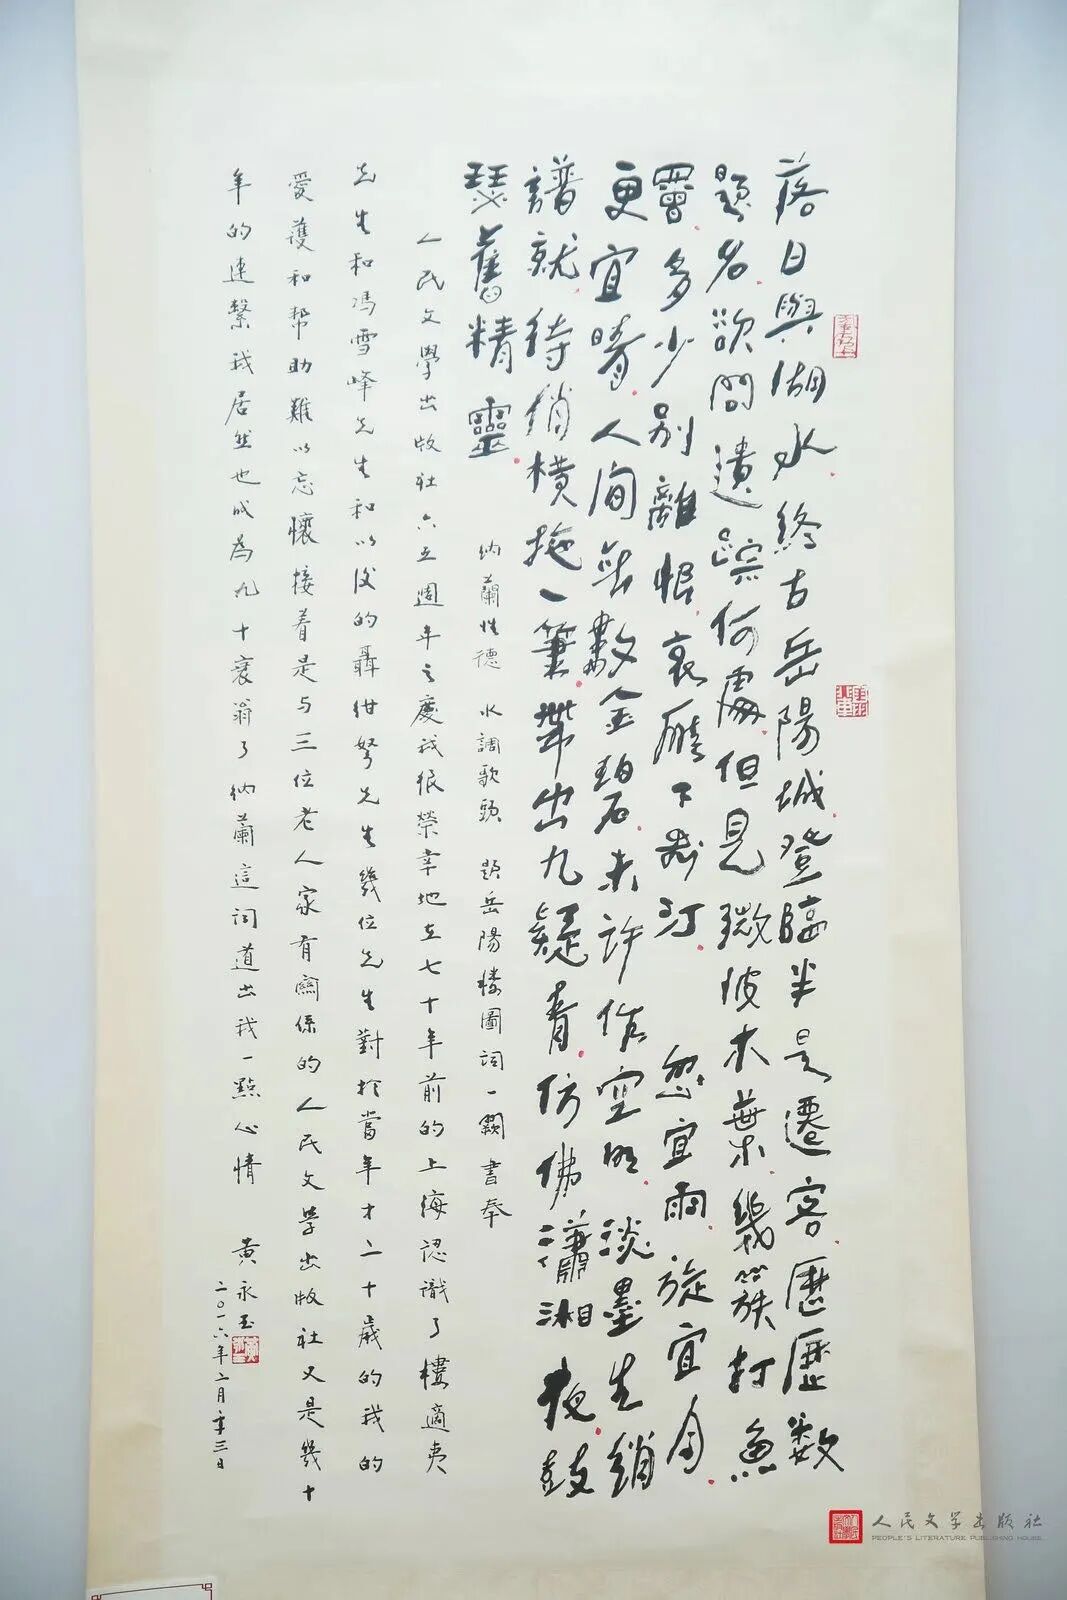 落日與湖水終古岳陽城登臨半是遷客歷歷數
題名欲問遺踪何處但見微波木葉幾簇打魚
罾多少別離恨哀雁下前汀 忽宜雨旋宜月
更宜晴人間無數金碧未許作空明淡墨生綃
譜就待橫拖一筆帶出九疑青仿佛瀟湘夜鼓
瑟舊精靈
納蘭性德 水調歌頭 題岳陽楼圖詞一闋 書奉
人民文學出版社六五週年之慶我很榮幸地在七十年前的上海認識了樓適夷
先生和馮雪峰先生和以後的聶紺弩先生幾位先生對於當年才二十歲的我的
愛護和帮助難以忘懷接着是与三位老人家有關係的人民文学出版社又是幾十
年的連繫我居然也成為九十衰翁了納蘭這詞道出我一點心情 黄永玉
二〇一六年二月三日
人民文学出版社
PEOPLE'S LITERATURE PUBLISHING HOUSE